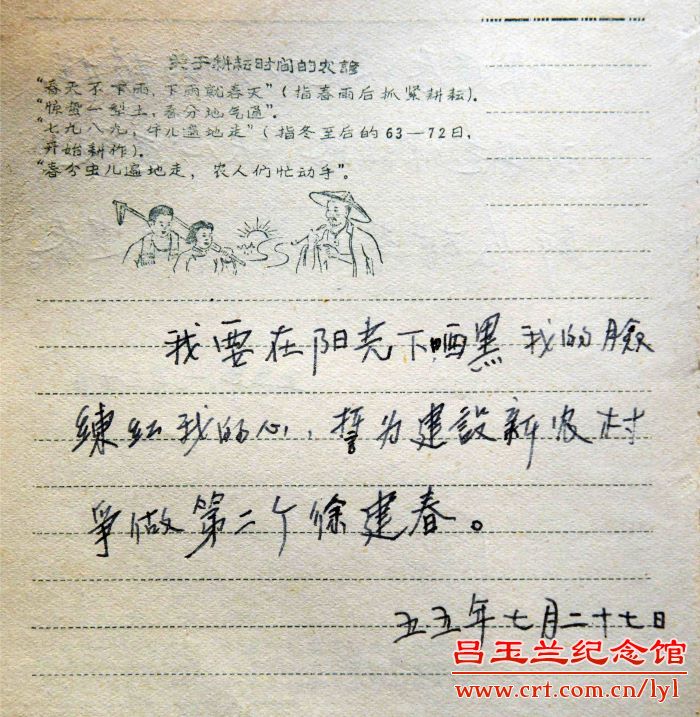 关于耕耘时间的农谚
“春天不下雨，下雨就春天”（指春雨后抓紧耕耘）．
“惊蛰一犁土，春分地气通”．
“七九八九，牛儿遍地走”（指冬至后的63—72日，
开始耕作）．
“春分虫儿遍地走，农人们忙动手”．
我要在阳光下晒黑我的臉
練红我的心，誓为建設新农村
爭做第二个徐建春。
五五年七月二十七日
吕玉兰纪念馆
www.crt.com.cn/lyl